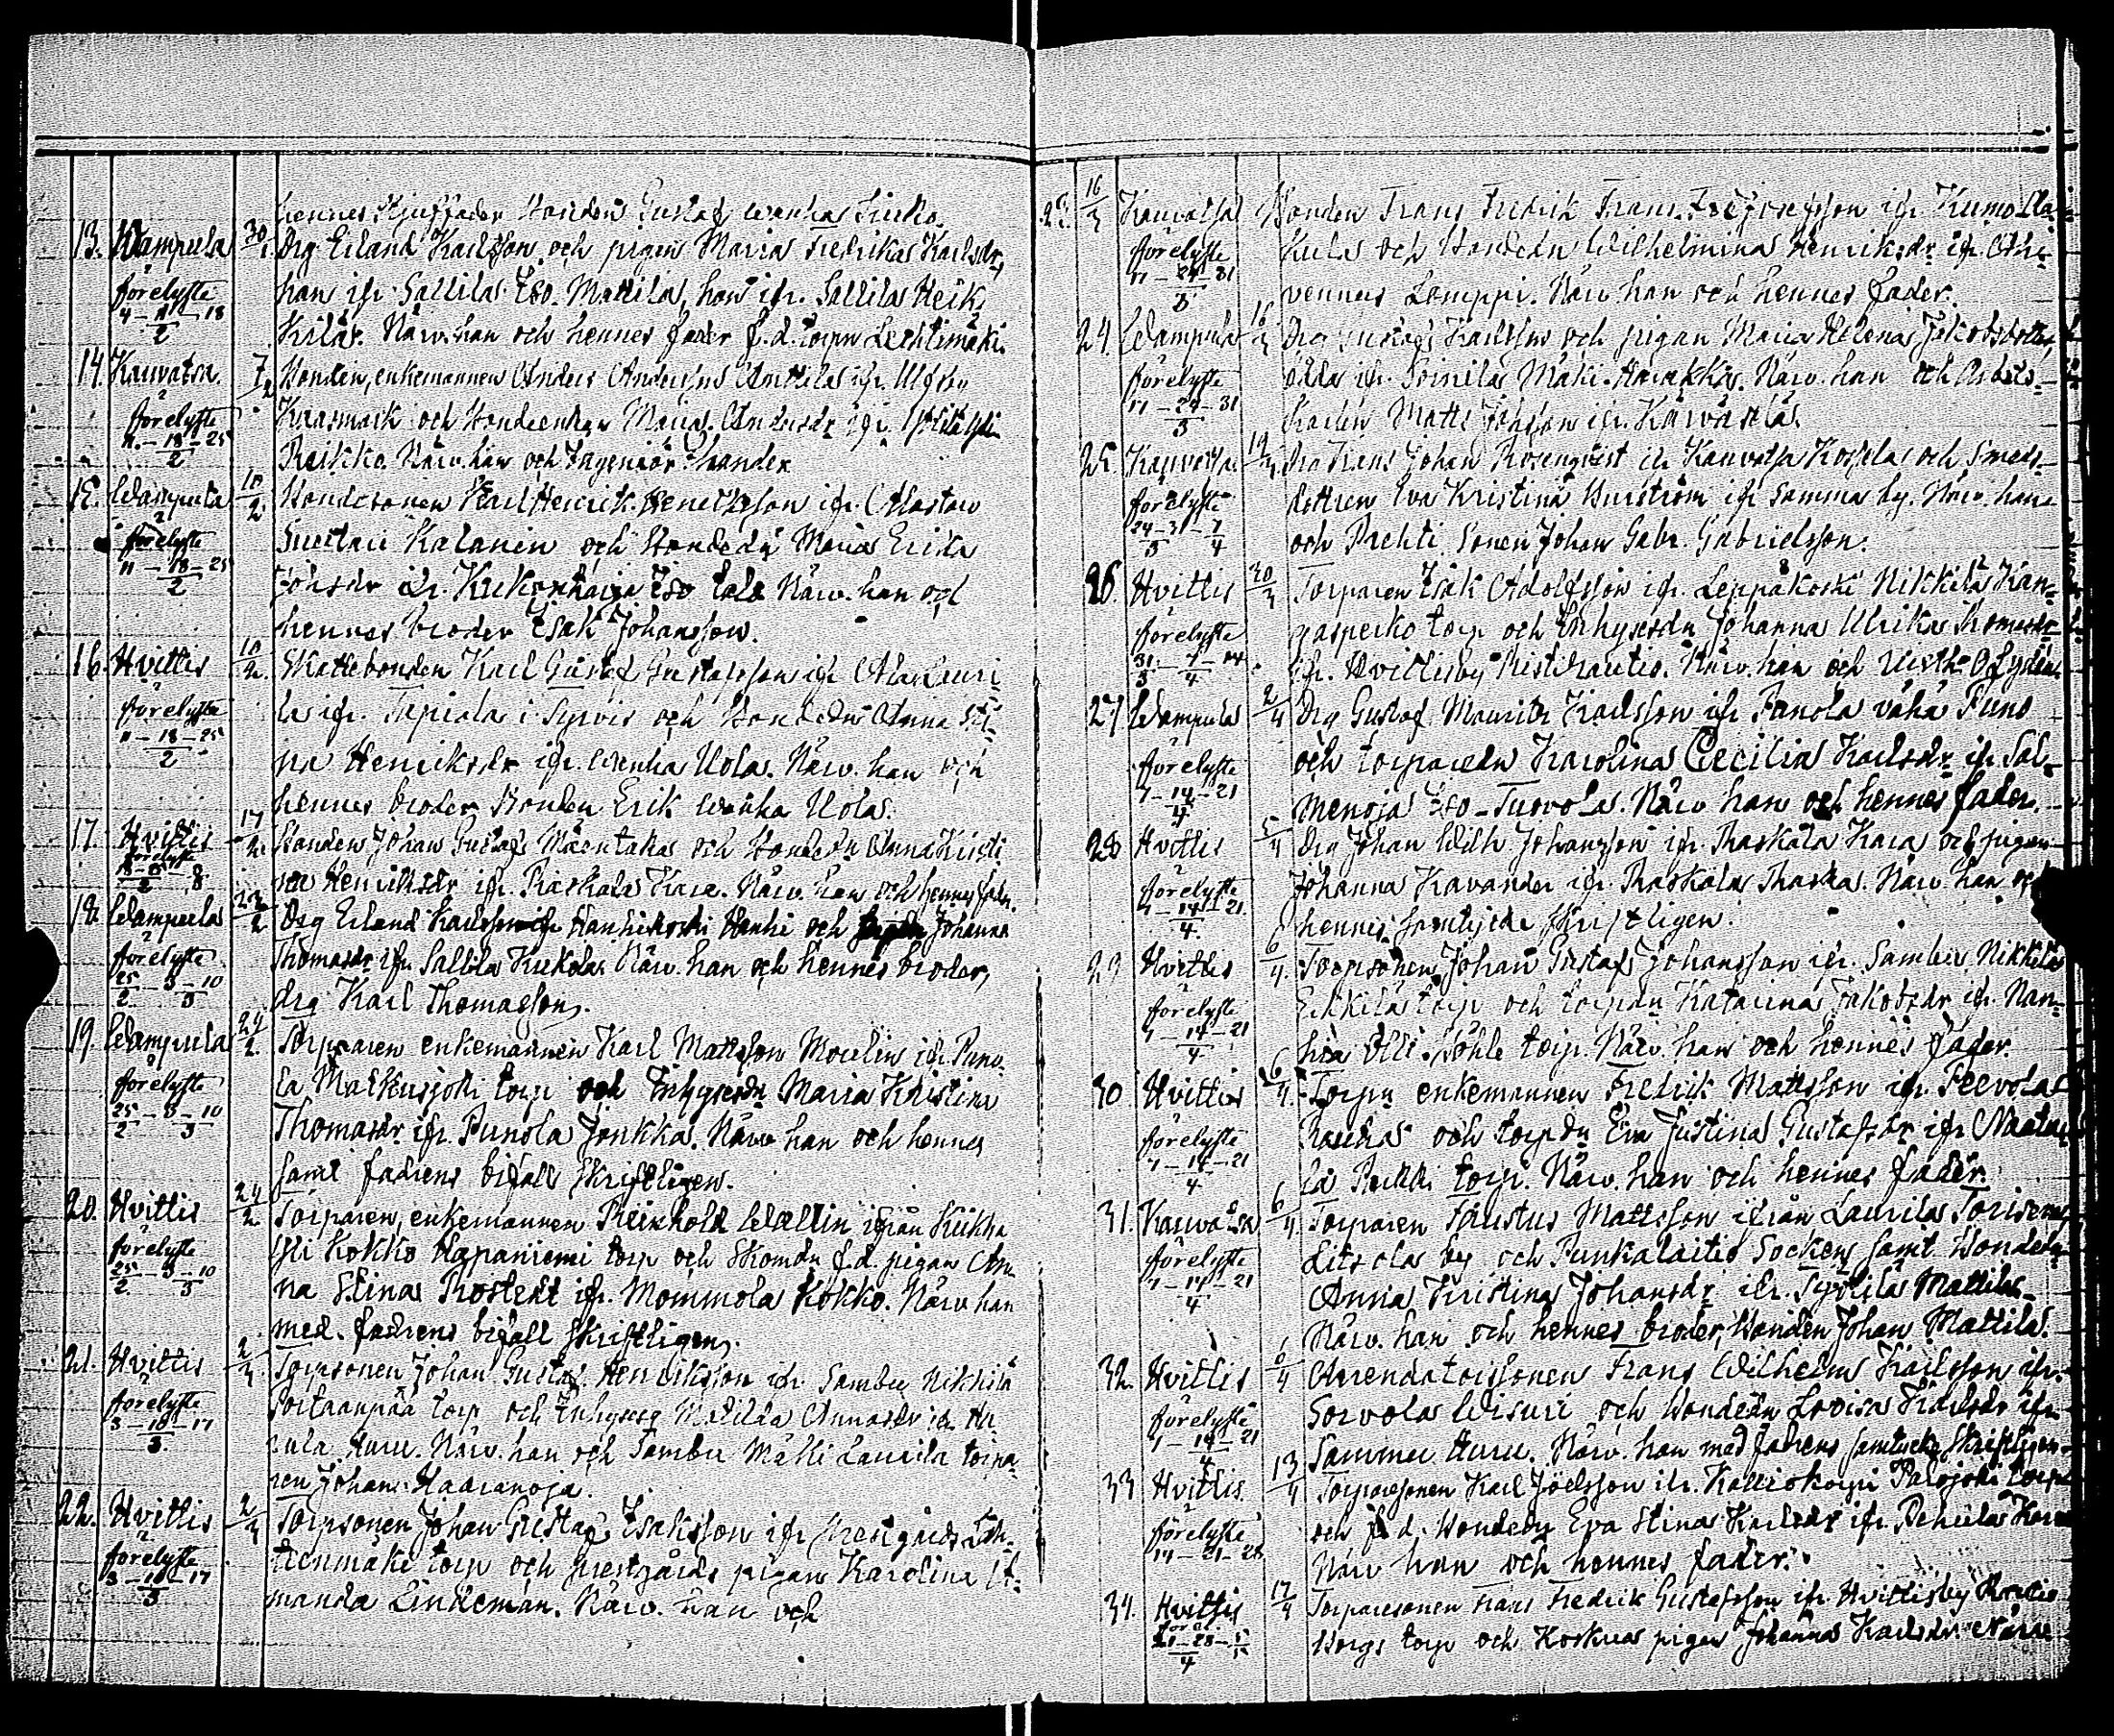 hennes styffader bonden Gustaf wanha
13. Wampula 30/1 Drg Erland Karlsson och pigan Maria Fredrika Karlsdr,
förelyste 4-11-18/2 han ifr. Sallila Iso-Mattila, hon ifr. Sallila Heik
kilä. Närv. han och hennes fader f.d. torpn Lechtimäki.
14. Kauvatsa 7/2 Bonden, enkemannen Anders Andersson Anttila ifr.
förelyste 11-18-25/2 Krasmack och bondeenkan Maria Andersdr ifr.
Reikko. Närv. han och Ingeniör
15. Wampula 10/2 Bondesonen Karl Henrik Henriksson ifr. Alastaro
förelyste 11-18-25/2 Kalanen och bondedn Maria Erika
Johsdr ifr. Kukonharja Iso talo. Närv. han och
hennes broder Isak Johansson.
16. Hvittis 10/2 Skattebonden Karl Gustaf Gustafsson ifr
förelyste 11-18-25/2 la ifr. Tapiola i Tyrvis och bondedn Anna Sti-
na Henriksdr ifr. wanha Uola. Närv. han och
hennes broder bonden Erik wanha Uola.
17. Hvittis 17/2 Bonden Johan Gustaf Mäentaka och bondedn Anna Kristi
förelyste na Henriksdr ifr. Raskala Kara. Närv. han och hennes fader.
18. Wampula 23/2 Drg Erland Karlsson ifr Hanhikoski Hanhi och Johanna
förelyste 25/2-3-10/3 Thomasdr ifr. Sallila Kukola. Närv. han och hennes broder,
drg Karl Thomasson.
19. Wampula 24/2 Torpparen enkemannen Karl Mattsson Moulin ifr. Puno-
förelyste 25/2-3-10/3 la Matkusjoki torp och Inhysesdn Maria Kristina
Thomasdr ifr. Punola Jonkka. Närv han och hennes
samt fadrens bifall skriftligen.
20. Hvittis 24/2 Torparen, enkemannen Reinhold Wallin ifrån
förelyste 25/2-3-10/3 Kokko Hapaniemi torp och Skomdn f.d. pigan An
na Stina Rostedt ifr. Mommola Kokko. Närv han
med fadrens bifall skriftligen.
21. Hvittis 2/3 Torpsonen Johan Gustaf Henriksson ifr. Sambu Nikkilä
förelyste 3-10-17/3 torp och Inhyses Matilda Annasdr ifr.
Huru. Närv. han och Sambu Matti Laurila torpa-
ren Johan Haaranoja.
22. Hvittis 2/3 Torpsonen Johan Gustaf Isaksson ifr Prestgårds
förelyste 3-10-17/3 torp och prestgårds pigan Karolina A-
manda Lindeman. Närv. han och
23. 16/3 Kauvatsa Bonden Frans Fredrik Frans. Josefsson ifr. Kumo
förelyste 17-24-31/3 och bondedn Wilhelmina Henriksdr ifr.
Lamppi. Närv. han och hennes fader.
24. Wampula 16/3 Drg Gustaf Karlsson och pigan Maria Helena Jakobsdotter,
förelyste 17-24-31/3 båda ifr. Soinila Mäki-Harakka. Närv. han och Arbets-
karlen Matts Johsson ifr. Karvasola.
25. Kauvatsa 19/3 Drg Frans Johan Rosenqvist ifr Kauvatsa Koskela och Smeds-
förelyste 24-31/3-7/4 dottren Eva Kristina Burström ifr samma by. Närv. han
och Prehti Sonen Johan Gabr. Gabrielsson.
26. Hvittis 30/3 Torparen Isak Adolfsson ifr. Leppäkoski Nikkilä Kan-
förelyste 31/3-7-14/4 gasperko torp och Inhysesdn Johanna Ulrika Thomasdr
ifr. Hvittisby Ristirautio. Närv. han och
27. Wampula 2/4 Drg Gustaf Maurits Karlsson ifr Punola vähä Puno
förelyste 7-14-21/4 och torparedn Karolina Cecilia Karlsdr ifr Sal-
menoja Iso-Turvola. Närv han och hennes fader.
28. Hvittis 5/4 Drg Johan Wilh Johansson ifr. Raskala Kara och pigan
förelyste 7-14-21/4 Johanna Kavander ifr. Raskala Raska. Närv. han och
hennes samtycke skriftligen.
29. Hvittis 6/4 Torpsonen Johan Gustaf Johansson ifr. Sambu Nikkilä
förelyste 7-14-21/4 Erkkilä torp och torpdn Katarina Jakobsdr ifr. Nan-
hia Olli torp. Närv. han och hennes fader.
30. Hvittis 6/4 Torpn enkemannen Fredrik Mattsson ifr. Peevola
förelyste 7-14-21/4 Rauha och torpdn Eva Justina Gustafsdr ifr
torp. Närv. han och hennes fader.
31. Kauvatsa 6/4 Torparen Faustus Mattsson ifrån Laurila Torisem
förelyste 7-14-21/4 by och Punkalaitio Socken samt bondedn
Anna Kristina Johansdr ifr. Mattila.
Närv. han och hennes broder, bonden Johan Mattila.
32. Hvittis 6/4 Arrendatorssonen Frans Wilhelm Karlsson ifr.
förelyste 7-14-21/4 Sorvola Wisuri och bondedn Lovisa Karlsdr ifr.
Sammu Huru. Närv. han med fadrens samtycke skriftligen.
33 Hvittis 13/4 Torparesonen Karl Joelsson ifr. Kalliokorpi Palojoki torp
förelyste 14-21-28 och f.d. bondedn Eva Stina Karlsdr ifr. Pehula
Närv han och hennes fader.
34. Hvittis 17/4 Torparesonen Frans Fredrik Gustafsson ifr. Hvittisby
förel. 21-28/4-5/5 torp och pigan Johanna Karlsdr. Närv